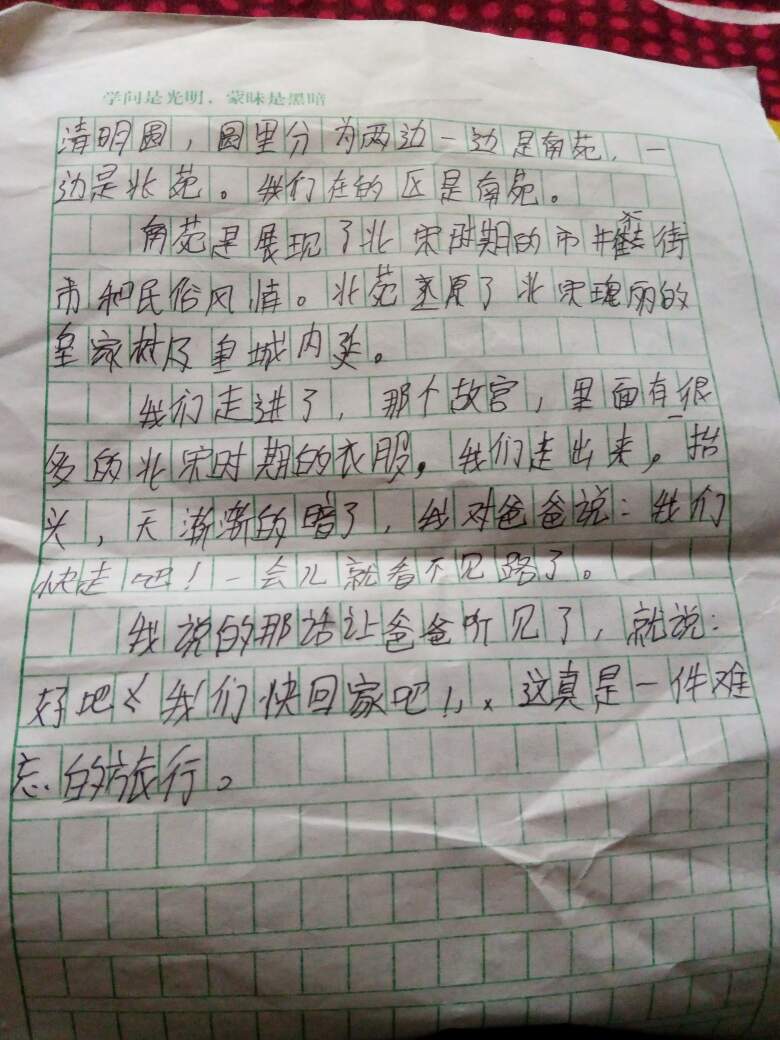 学问是光明，蒙昧是黑暗
清明园，园里分为两边一边是南苑，一
边是北苑。我们在的区是南苑。
南苑是展现了北宋时期的市井街
市和民俗风情。北苑还原了北宋瑰丽的
皇家林及皇城内廷。
我们走进了，那个故宫，里面有很
多的北宋时期的衣服，我们走出来，抬
头，天渐渐的暗了，我对爸爸说：我们
快走吧！一会儿就看不见路了。
我说的那话让爸爸听见了，就说：
好吧《我们快回家吧！，、这真是一件难
忘的旅行。